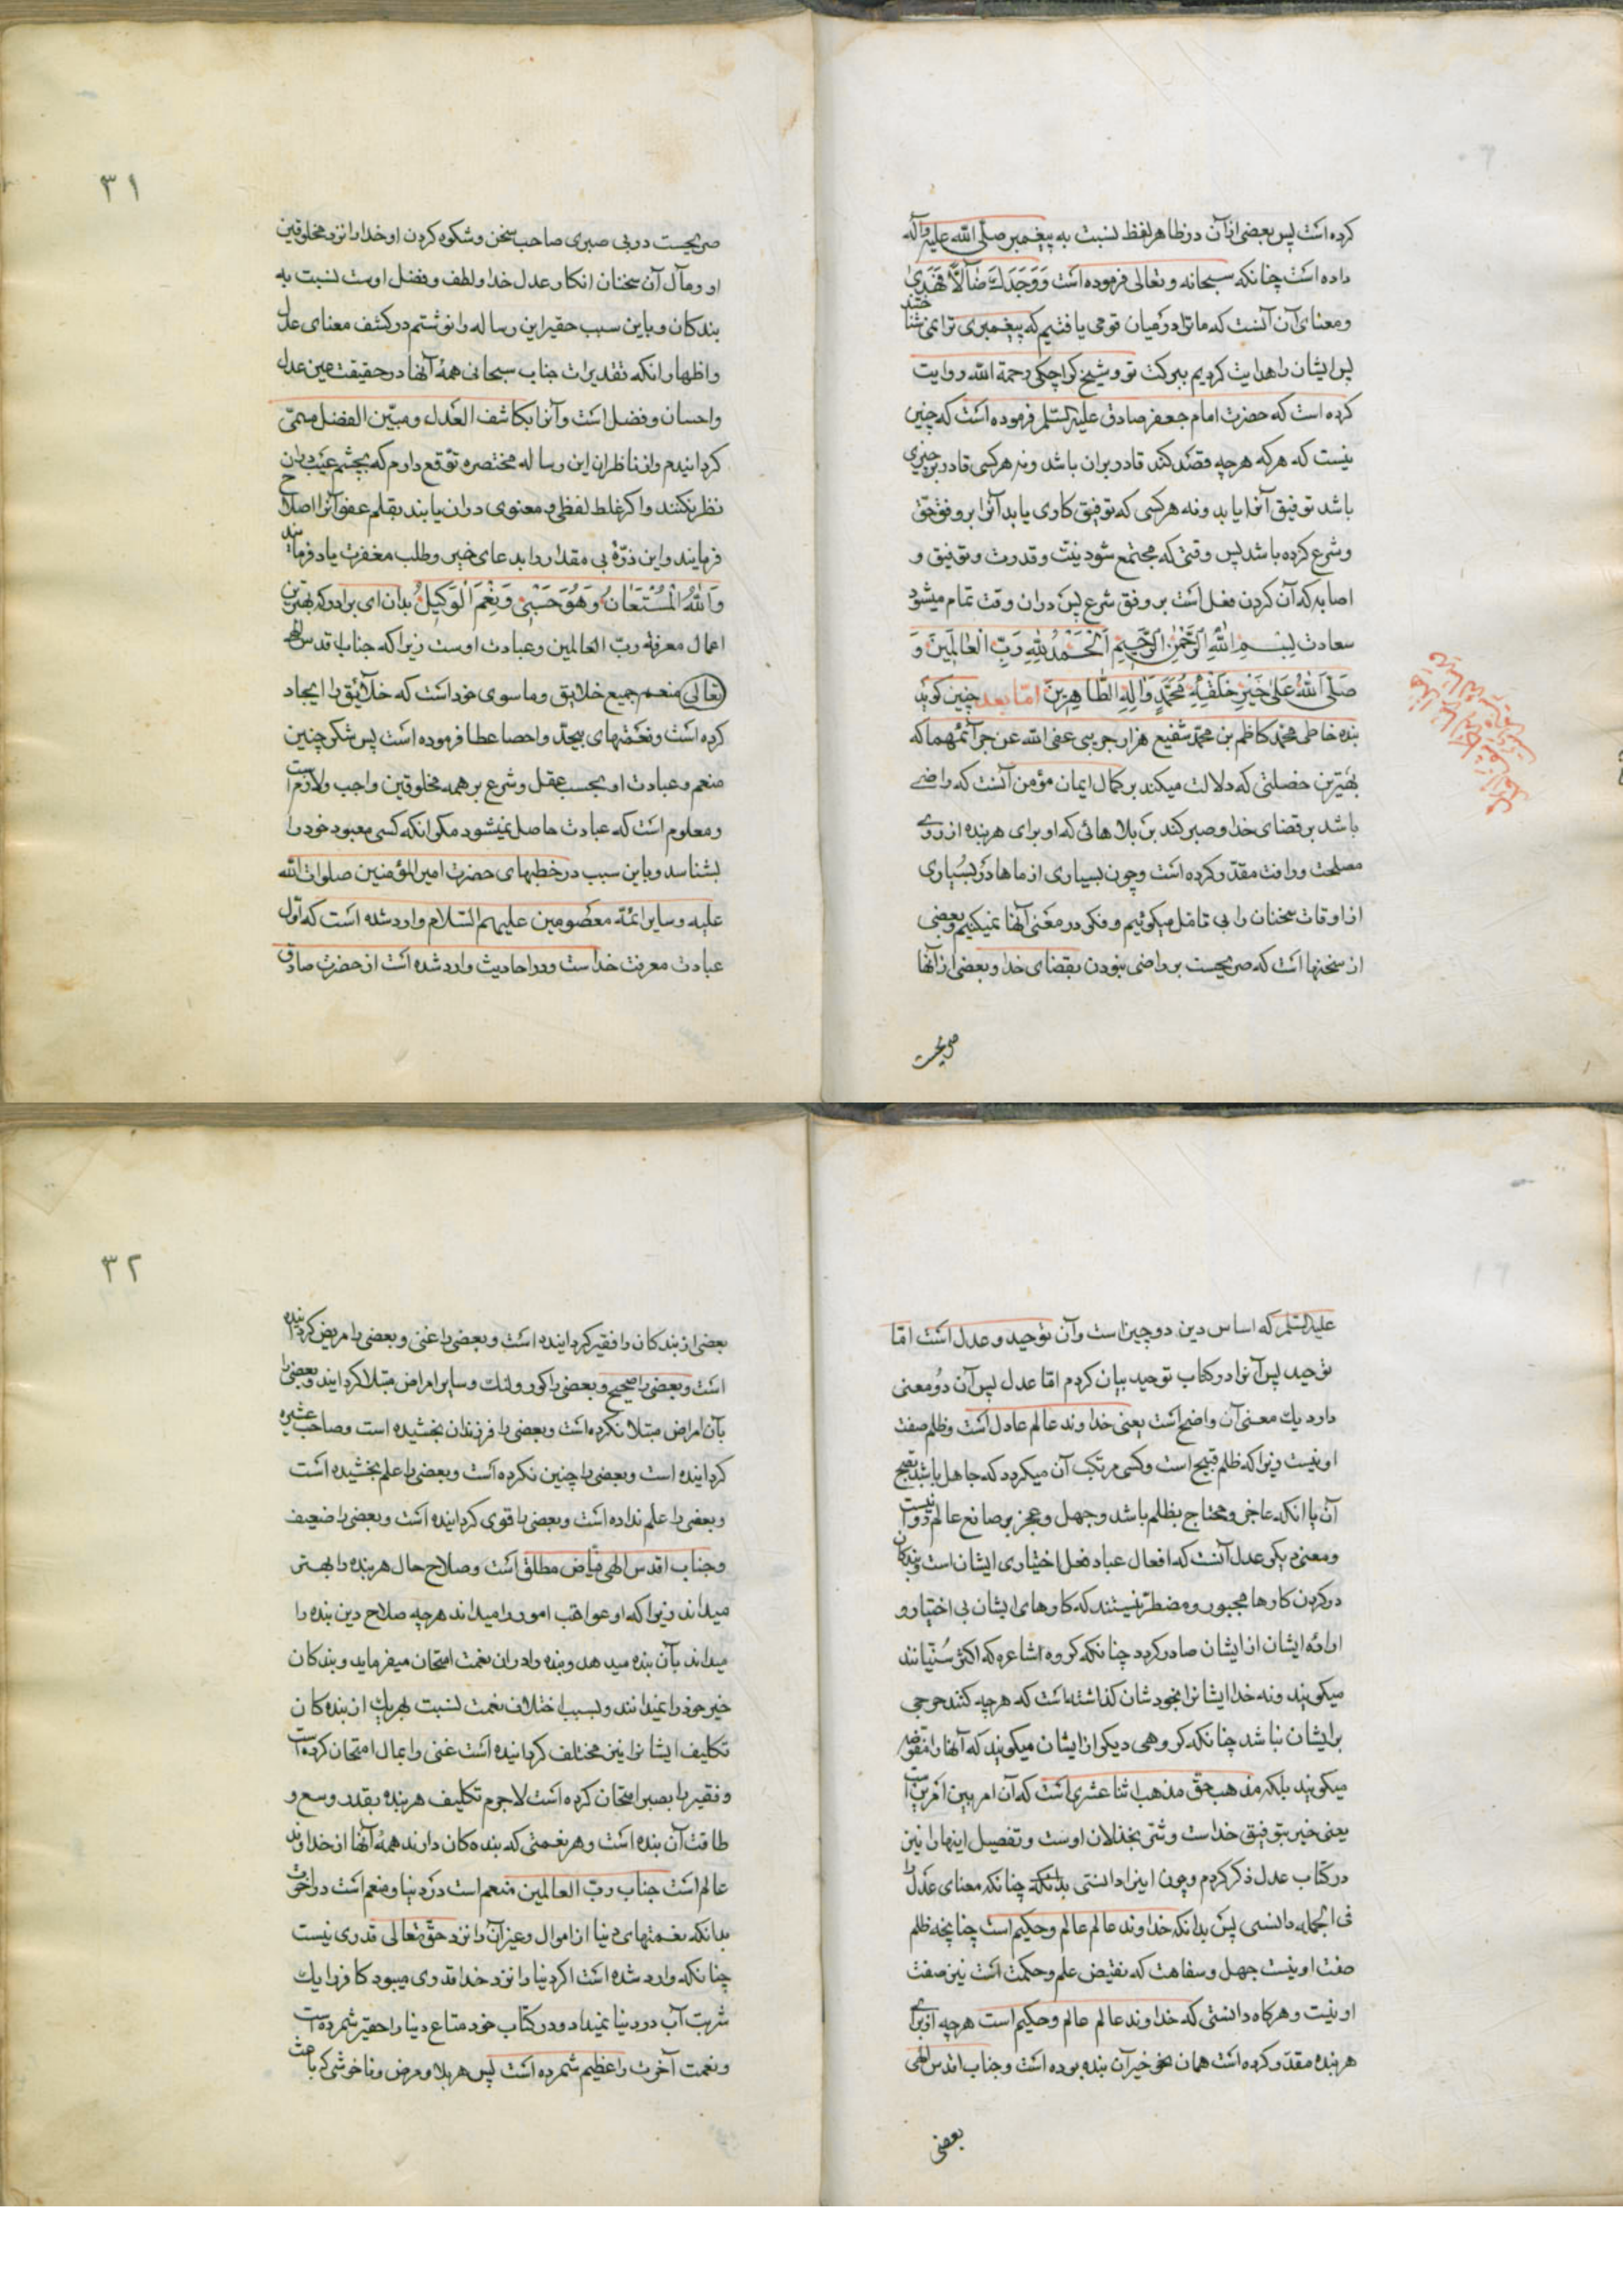 کرده است پس بعضی از آن در ظاهر لفظ نسبت به پیغمبر صلی الله علیه وآله
داده است چنانکه سبحانه و تعالی فرموده است وَوَجَدَكَ ضَآلًّا فَهَدىٰ
و معنای آن آنست که ما ترا در میان قومی یافتیم که پیغمبری ترا نمی شناختند
پس ایشان را هدایت کردیم ببرکت تو و شیخ کراجکی رحمة الله روایت
کرده است که حضرت امام جعفر صادق علیه السلم فرموده است که چنین
نیست که هر که هر چه قصد کند قادر بران باشد و نه هر کسی قادر بر چیزی
باشد توفیق آنرا یابد و نه هر کسی که توفیق کاری یابد آنرا بر وفق حق
و شرع کرده باشد پس وقتی که مجتمع شود نیّت و قدرت و توفیق و
اصابه که آن کردن فعل است بر وفق شرع پس دران وقت تمام میشود
سعادت بِسْمِ اللهِ الرَّحْمٰنِ الرَّحيمِ اَلْحَمْدُ لِلّٰهِ رَبِّ الْعٰالَمينَ وَ
صَلَّى اللهُ عَلىٰ خَيْرِ خَلْقِهِ مُحَمَّدٍ وَاٰلِهِ الطّٰاهِرينَ امّا بعد چنین کوید
بنده خاطی محمد کاظم بن محمد شفیع هزار جریبی عفی الله عن جرآئمهما که
بهترین خصلتی که دلالت میکند بر کمال ایمان مؤمن آنست که راضی
باشد بر قضای خدا و صبر کند بر بلاهائی که او برای هر بنده از روی
مصلحت و رافت مقدر کرده است و چون بسیاری از ماها در بسیاری
از اوقات سخنان را بی تامل میکوئیم و فکر در معنی آنها نمیکنیم و بعضی
از سخنها است که صریحست بر راضی نبودن بقضای خدا و بعضی از آنها
صریحست
۳۱
صریحست در بی صبری صاحب سخن و شکوه کردن او خدا را نزد مخلوقین
او و مآل آن سخنان انکار عدل خدا و لطف و فضل اوست نسبت به
بندکان و باین سبب حقیر این رساله را نوشتم در کشف معنای عدل
و اظهار انکه تقدیرات جناب سبحانی همهٔ آنها در حقیقت عین عدل
و احسان و فضل است و آنرا بکاشف العدل و مبیّن الفضل مسمّی
کردانیدم و از ناظران این رساله مختصره توقع دارم که بچشم عیب دران
نظر نکنند و اکر غلط لفظی و معنوی دران یابند بقلم عفو آنرا اصلاح
فرمایند و این ذرّهٔ بی مقدار را بدعای خیر و طلب مغفرت یاد فرمایند
وَاللهُ الْمُسْتَعٰانُ وَهُوَ حَسْبي وَنِعْمَ الْوَكيلُ بدان ای برادر که بهترین
اعمال معرفة ربّ العالمین و عبادت اوست زیرا که جناب اقدس الهی
تعالی منعم جمیع خلایق و ما سوی خود است که خلآئق را ایجاد
کرده است و نعمتهای بیحدّ و احصا عطا فرموده است پس شکر چنین
منعم و عبادت او بحسب عقل و شرع بر همه مخلوقین واجب و لازم است
و معلوم است که عبادت حاصل نمیشود مکر انکه کسی معبود خود را
بشناسد و باین سبب در خطبهای حضرت امیر المؤمنین صلوات الله
علیه و سایر ائمّه معصومین علیهم السلام وارد شده است که اوّل
عبادت معرفت خداست و در احادیث وارد شده است از حضرت صادق
علیه السلم که اساس دین دو چیز است و آن توحید و عدل است امّا
توحید پس آنرا در کتاب توحید بیان کردم امّا عدل پس آن دو معنی
دارد یك معنی آن واضح است یعنی خداوند عالم عادل است و ظلم صفت
او نیست زیرا که ظلم قبیح است و کسی مرتکب آن میکردد که جاهل باشد بقبح
آن یا انکه عاجز و محتاج بظلم باشد و جهل و عجز بر صانع عالم روا نیست
و معنی دیکر عدل آنست که افعال عباد فعل اختیاری ایشان است و بندکان
در کردن کارها مجبور و مضطرّ نیستند که کارهای ایشان بی اختیار و
ارادهٔ ایشان از ایشان صادر کردد چنانکه کروه اشاعره که اکثر سُنّیانند
میکویند و نه خدا ایشانرا بخودشان کذاشته است که هر چه کنند حرجی
بر ایشان نباشد چنانکه کروهی دیکر از ایشان میکویند که آنها را مفوّضه
میکویند بلکه مذهب حق مذهب اثنا عشری است که آن امر بین امرین است
یعنی خیر بتوفیق خداست و شرّ بخذلان اوست و تفصیل اینها را نیز
در کتاب عدل ذکر کردم و چون اینرا دانستی بدانکه چنانکه معنای عدل را
فی الجمله دانستی پس بدانکه خداوند عالم عالم و حکیم است چنانچه ظلم
صفت او نیست جهل و سفاهت که نقیض علم و حکمت است نیز صفت
او نیست و هرکاه دانستی که خداوند عالم عالم و حکیم است هر چه او برای
هر بنده مقدر کرده است همان نحو خیر آن بنده بوده است و جناب اقدس الهی
بعضی
۳۲
بعضی از بندکان را فقیر کردانیده است و بعضی را غنی و بعضی را مریض کردانیده
است و بعضی را صحیح و بعضی را کور و لنك و سایر امراض مبتلا کردانید و بعضی را
بآن امراض مبتلا نکرده است و بعضی را فرزندان بخشیده است و صاحب عشیره
کردانیده است و بعضی را چنین نکرده است و بعضی را علم بخشیده است
و بعضی را علم نداده است و بعضی را قوی کردانیده است و بعضی را ضعیف
و جناب اقدس الهی فیّاض مطلق است و صلاح حال هر بنده را بهتر
میداند زیرا که او عواقب امور را میداند هر چه صلاح دین بنده را
میداند بآن بنده میدهد و بنده را دران نعمت امتحان میفرماید و بندکان
خیر خود را نمیدانند و بسبب اختلاف نعمت نسبت بهریك از بنده کان
تکالیف ایشانرا نیز مختلف کردانیده است غنی را بمال امتحان کرده است
و فقیر را بصبر امتحان کرده است لاجرم تکلیف هر بنده بقدر وسع و
طاقت آن بنده است و هر نعمتی که بنده کان دارند همهٔ آنها از خداوند
عالم است جناب ربّ العالمین منعم است در دنیا و منعم است در آخرت
بدانکه نعمتهای دنیا از اموال و غیر آن را نزد حق تعالی قدری نیست
چنانکه وارد شده است اکر دنیا را نزد خدا قدری میبود کافر را یك
شربت آب در دنیا نمیداد و در کتاب خود متاع دنیا را حقیر شمرده است
و نعمت آخرت را عظیم شمرده است پس هر بلا و مرض و ناخوشی که باعث